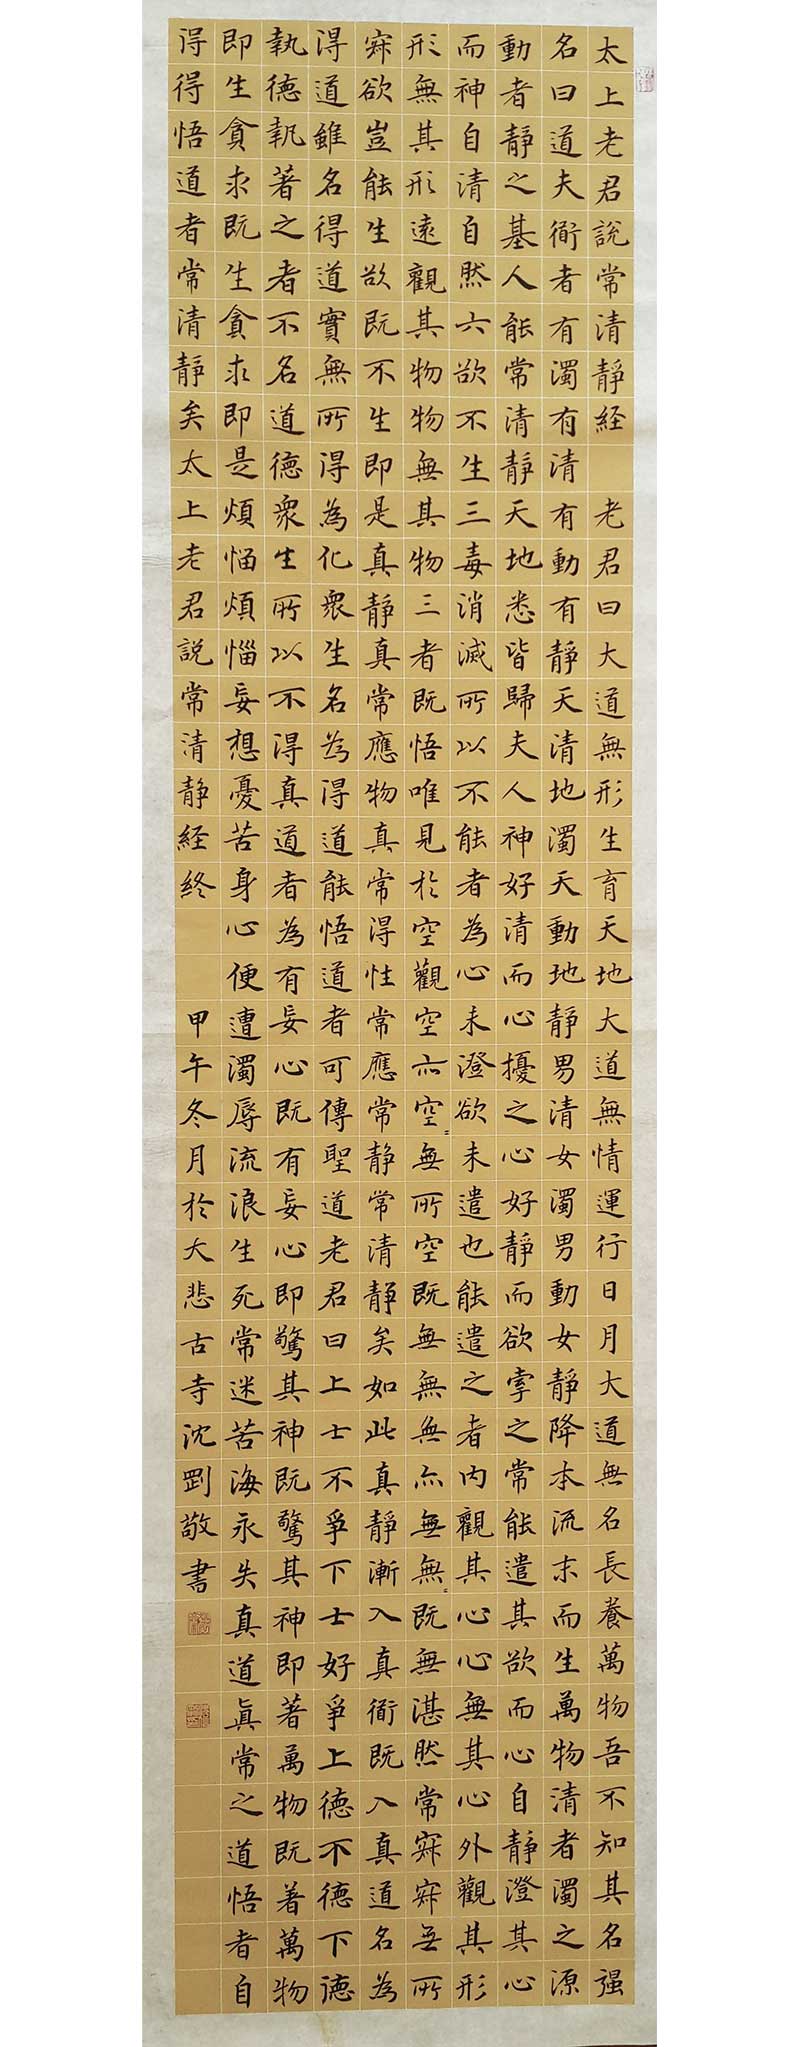 太上老君說常清靜経　老君曰大道無形生育天地大道無情運行日月大道無名長養萬物吾不知其名强
名曰道夫衜者有濁有清有動有靜天清地濁天動地靜男清女濁男動女靜降本流末而生萬物清者濁之源
動者靜之基人能常清靜天地悉皆歸夫人神好清而心擾之心好靜而欲牽之常能遣其欲而心自靜澄其心
而神自清自然六欲不生三毒消滅所以不能者為心未澄欲未遣也能遣之者內觀其心心無其心外觀其形
形無其形遠觀其物物無其物三者既悟唯見於空觀空亦空〻無所空既無無無亦無無〻既無湛然常寂寂無所
寂欲豈能生欲既不生即是真靜真常應物真常得性常應常靜常清靜矣如此真靜漸入真衜既入真道名為
得道雖名得道實無所得為化衆生名為得道能悟道者可傳聖道老君曰上士不爭下士好爭上德不德下德
執德執著之者不名道德衆生所以不得真道者為有妄心既有妄心即驚其神既驚其神即著萬物既著萬物
即生貪求既生貪求即是煩惱煩惱妄想憂苦身心便遭濁辱流浪生死常迷苦海永失真道眞常之道悟者自
得得悟道者常清靜矣太上老君說常清靜経終　甲午冬月於大悲古寺沈剛敬書